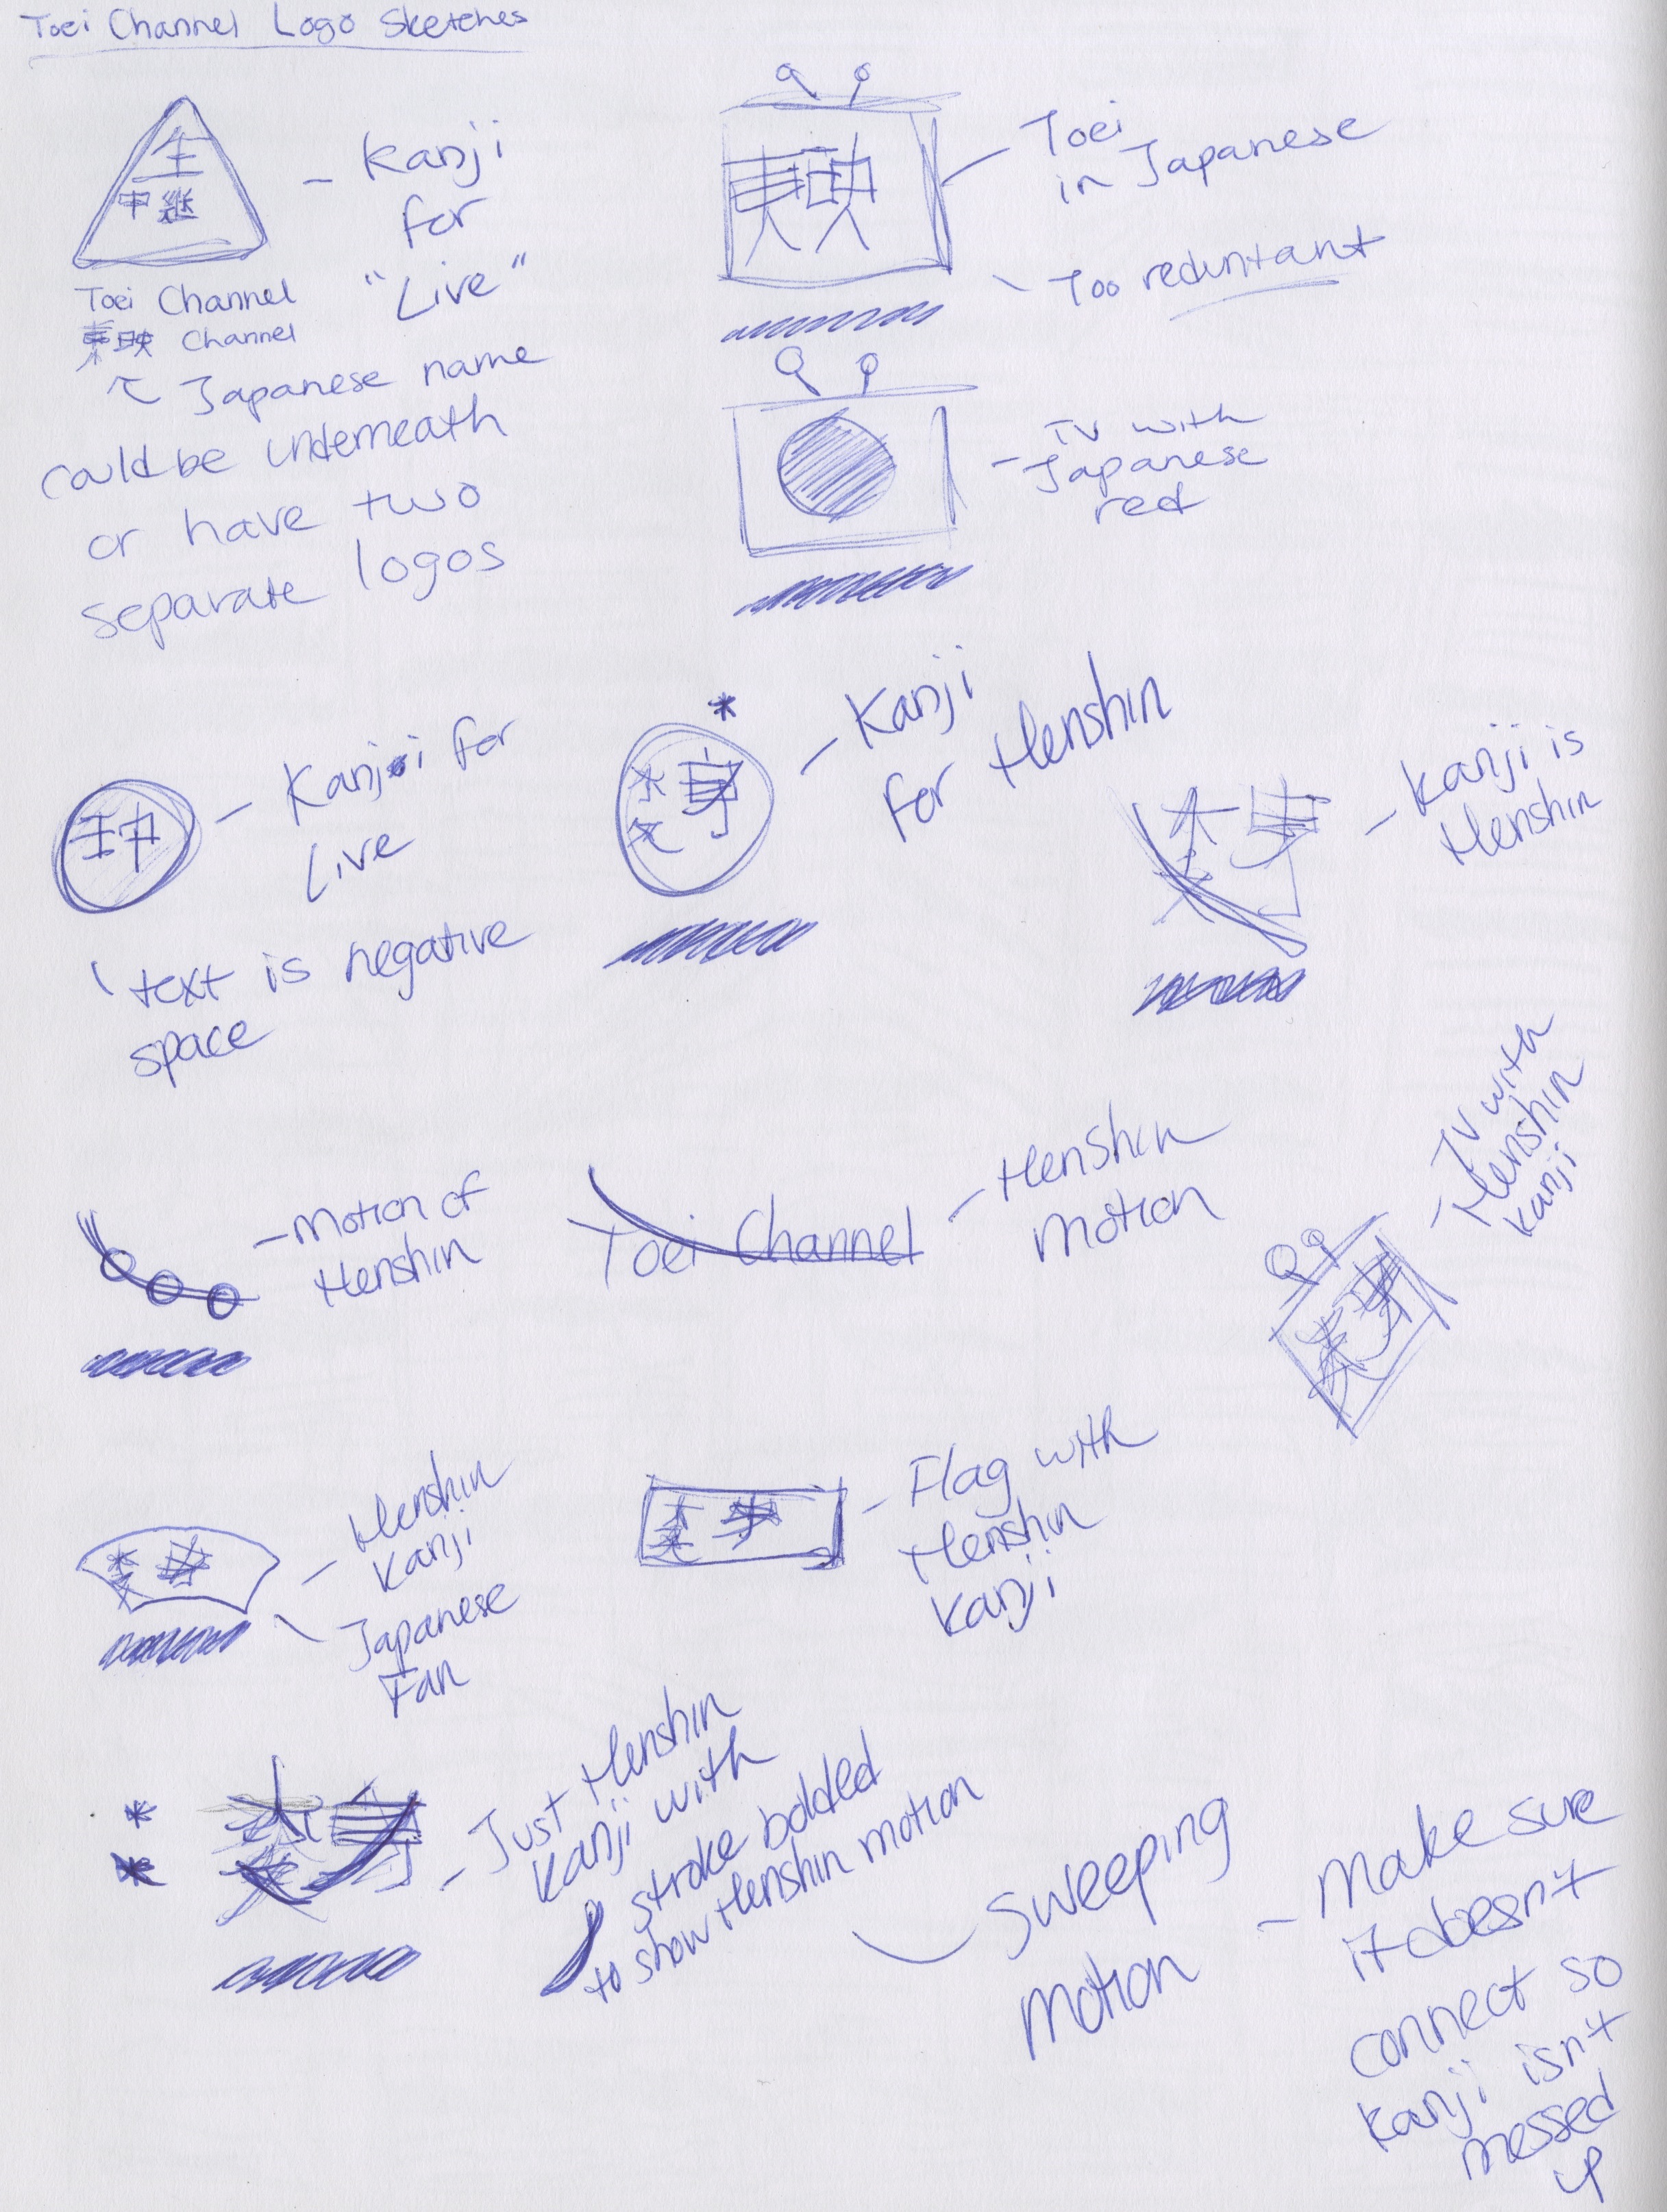 Toei Channel Logo Sketches
生
中継
- Kanji
for
"Live"
Toei Channel
東映 Channel
Japanese name
could be underneath
or have two
separate logos
東映
Toei
in Japanese
Too reduntant
- TV with
Japanese
red
- Kanji for
Live
text is negative
space
*
- Kanji
for Henshin
- Kanji is
Henshin
- Motion of
Henshin
Toei Channel
- Henshin
Motion
- TV with
Henshin
Kanji
- Henshin
Kanji
Japanese
Fan
- Flag with
Henshin
Kanji
*
*
- Just Henshin
Kanji with
stroke bolded
to show Henshin motion
Sweeping
Motion
- Make sure
it doesn't
connect so
Kanji isn't
messed
up